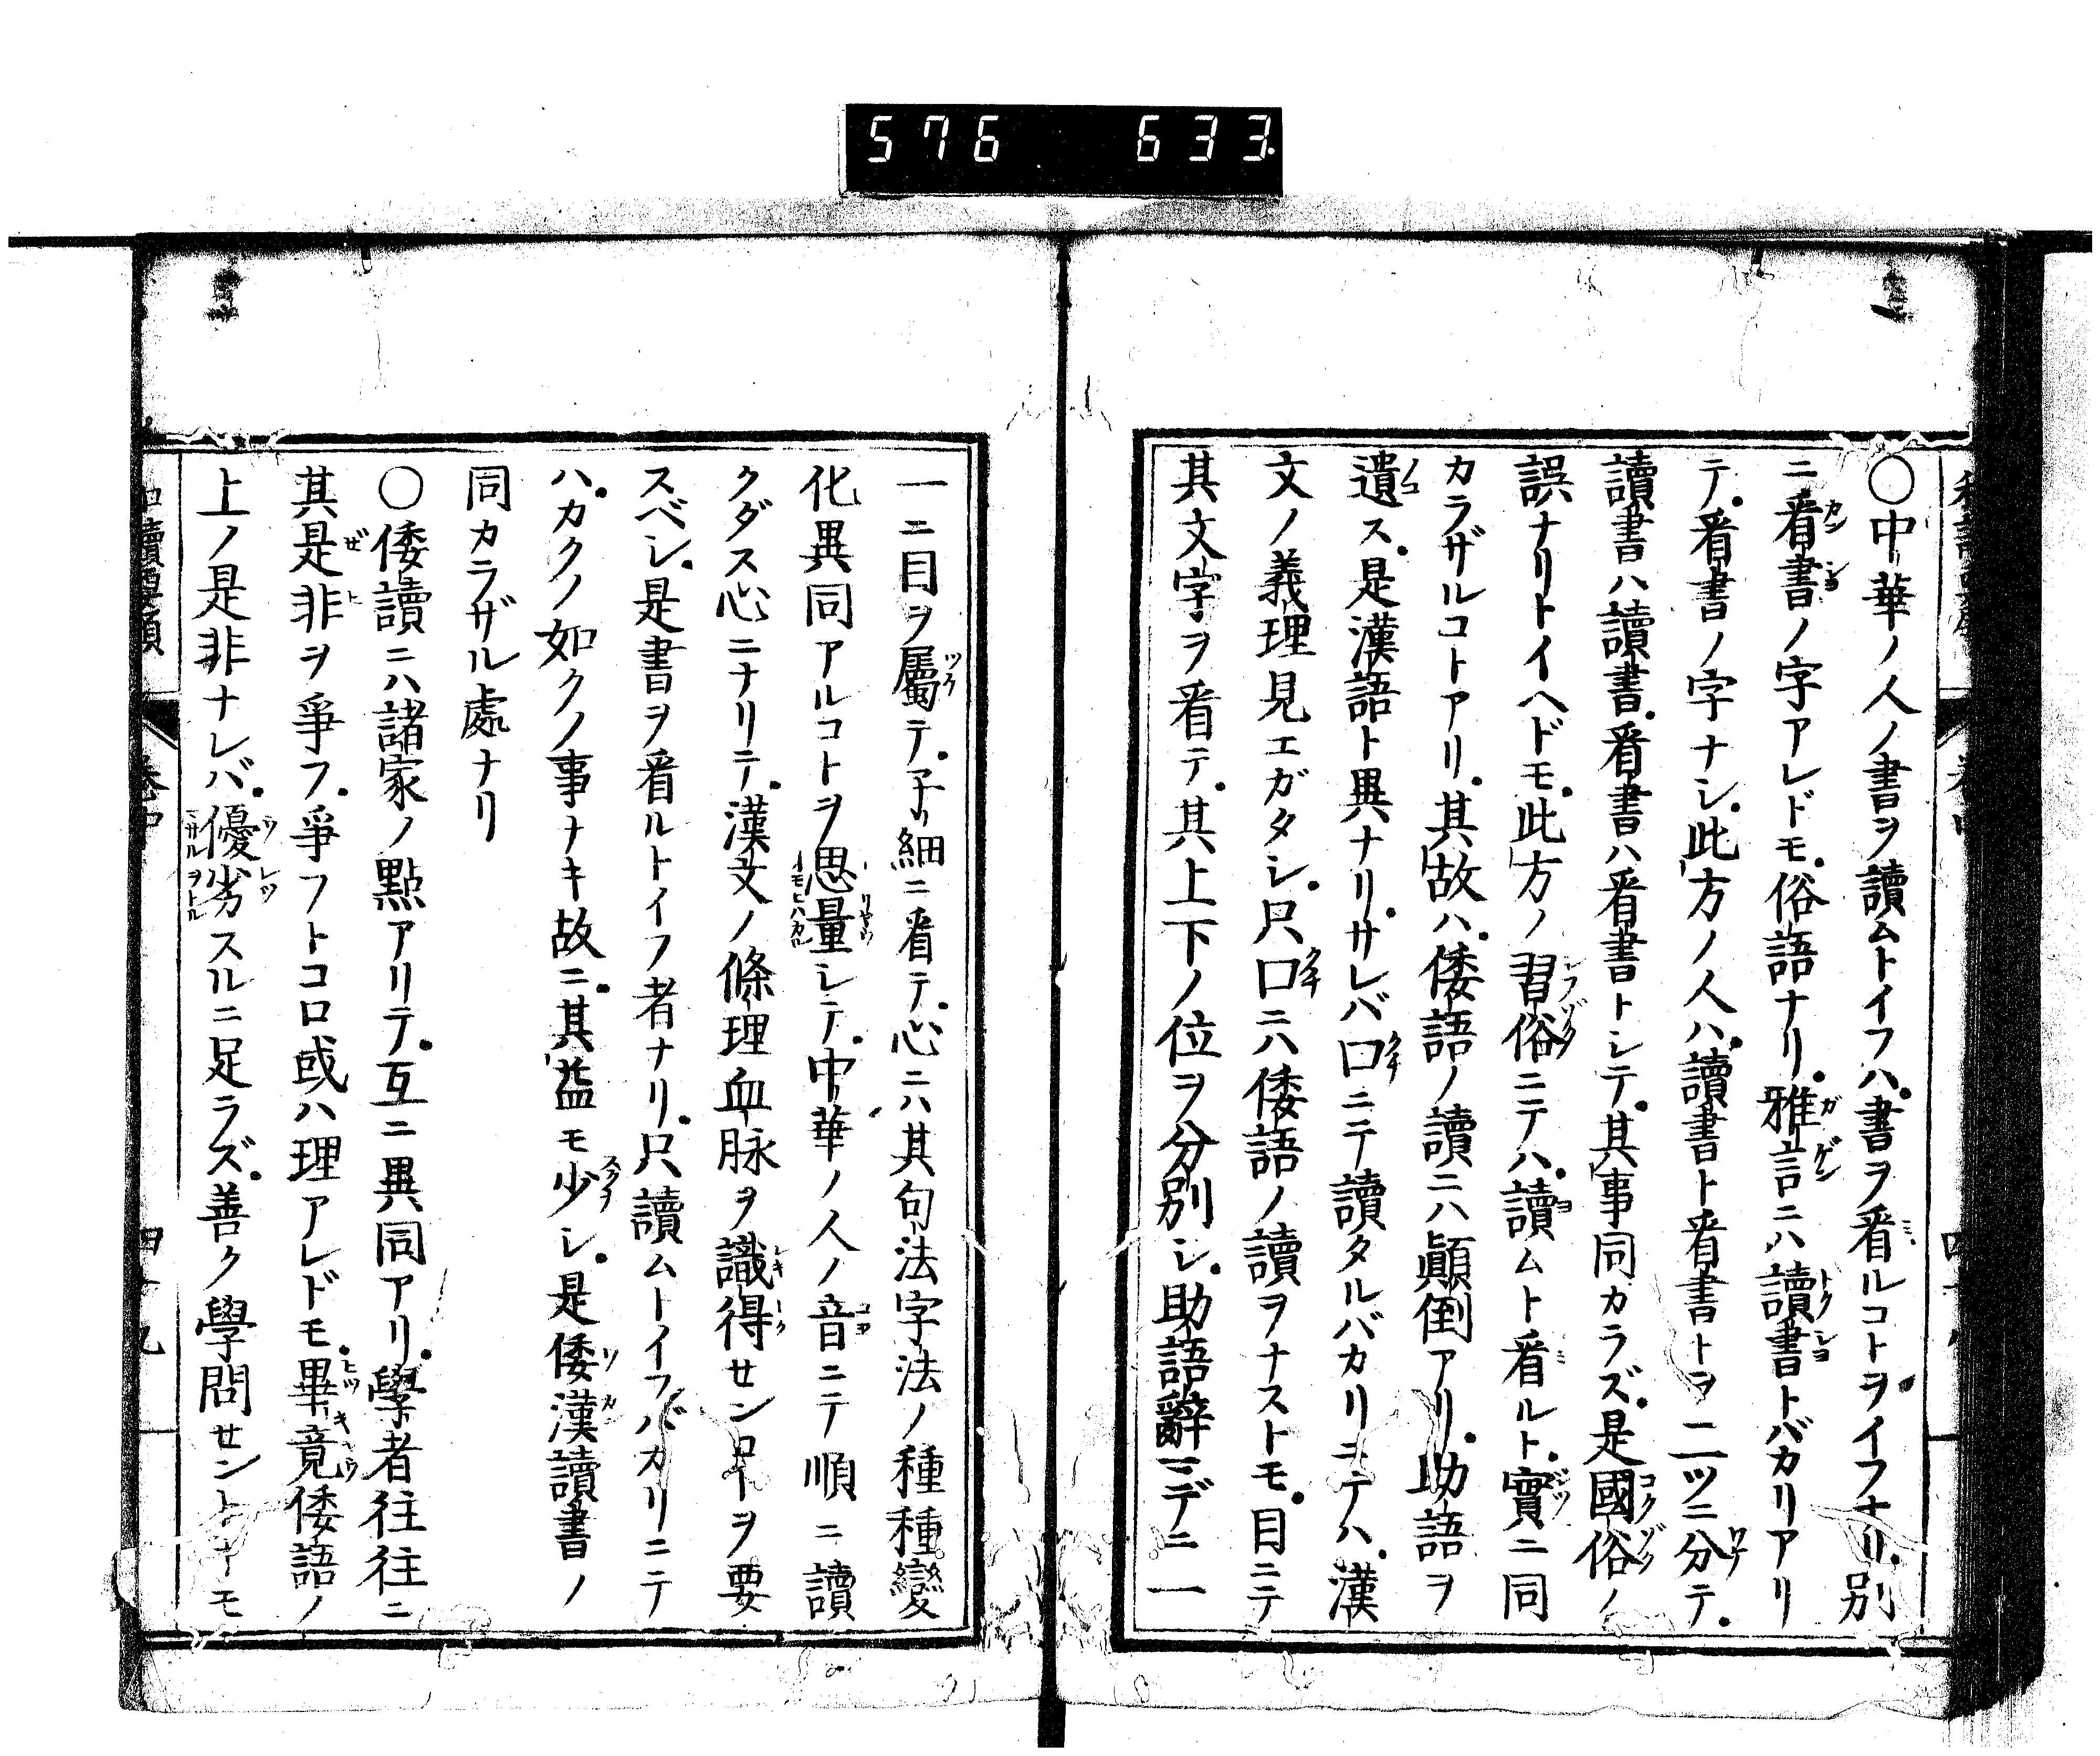 576 633
〇中華ノ人ノ書ヲ讀ムトイフハ書ヲ看ルコトヲイフナリ別
ニ看書ノ字アレドモ俗語ナリ雅言ニハ讀書トバカリアリ
テ看書ノ字ナシ此方ノ人ハ讀書ト看書トヲ二ツニ分テ
讀書ハ讀書看書ハ看書トシテ其事同カラズ是國俗ノ
誤ナリトイヘドモ此方ノ習俗ニテハ讀ムト看ルト實ニ同
カラザルコトアリ其故ハ倭語ノ讀ニハ顚倒アリ助語ヲ
遺ス是漢語ト異ナリサレバ口ニテ讀タルバカリニテハ漢
文ノ義理見エガタシ只口ニハ倭語ノ讀ヲナストモ目ニテ
其文字ヲ看テ其上下ノ位ヲ分別シ助語辭マデニ一
一ニ目ヲ屬テ子細ニ看テ心ニハ其句法字法ノ種種變
化異同アルコトヲ思量シテ中華ノ人ノ音ニテ順ニ讀
クダス心ニナリテ漢文ノ條理血脉ヲ識得センコトヲ要
スベシ是書ヲ看ルトイフ者ナリ只讀ムトイフバカリニテ
ハカクノ如クノ事ナキ故ニ其益モ少シ是倭漢讀書ノ
同カラザル處ナリ
〇倭讀ニハ諸家ノ點アリテ互ニ異同アリ學者往往ニ
其是非ヲ爭フ爭フトコロ或ハ理アレドモ畢竟倭語ノ
上ノ是非ナレバ優劣スルニ足ラズ善ク學問セントナモ